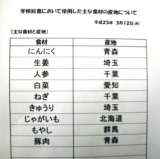 学校給食において使用した主な食材の産地について
平成25年 3月12日(火)
(主な食材と産地)
食材 産地
にんにく 青森
生姜 埼玉
人参 千葉
白菜 愛知
ねぎ 千葉
きゅうり 埼玉
じゃがいも 北海道
もやし 群馬
豚肉 青森